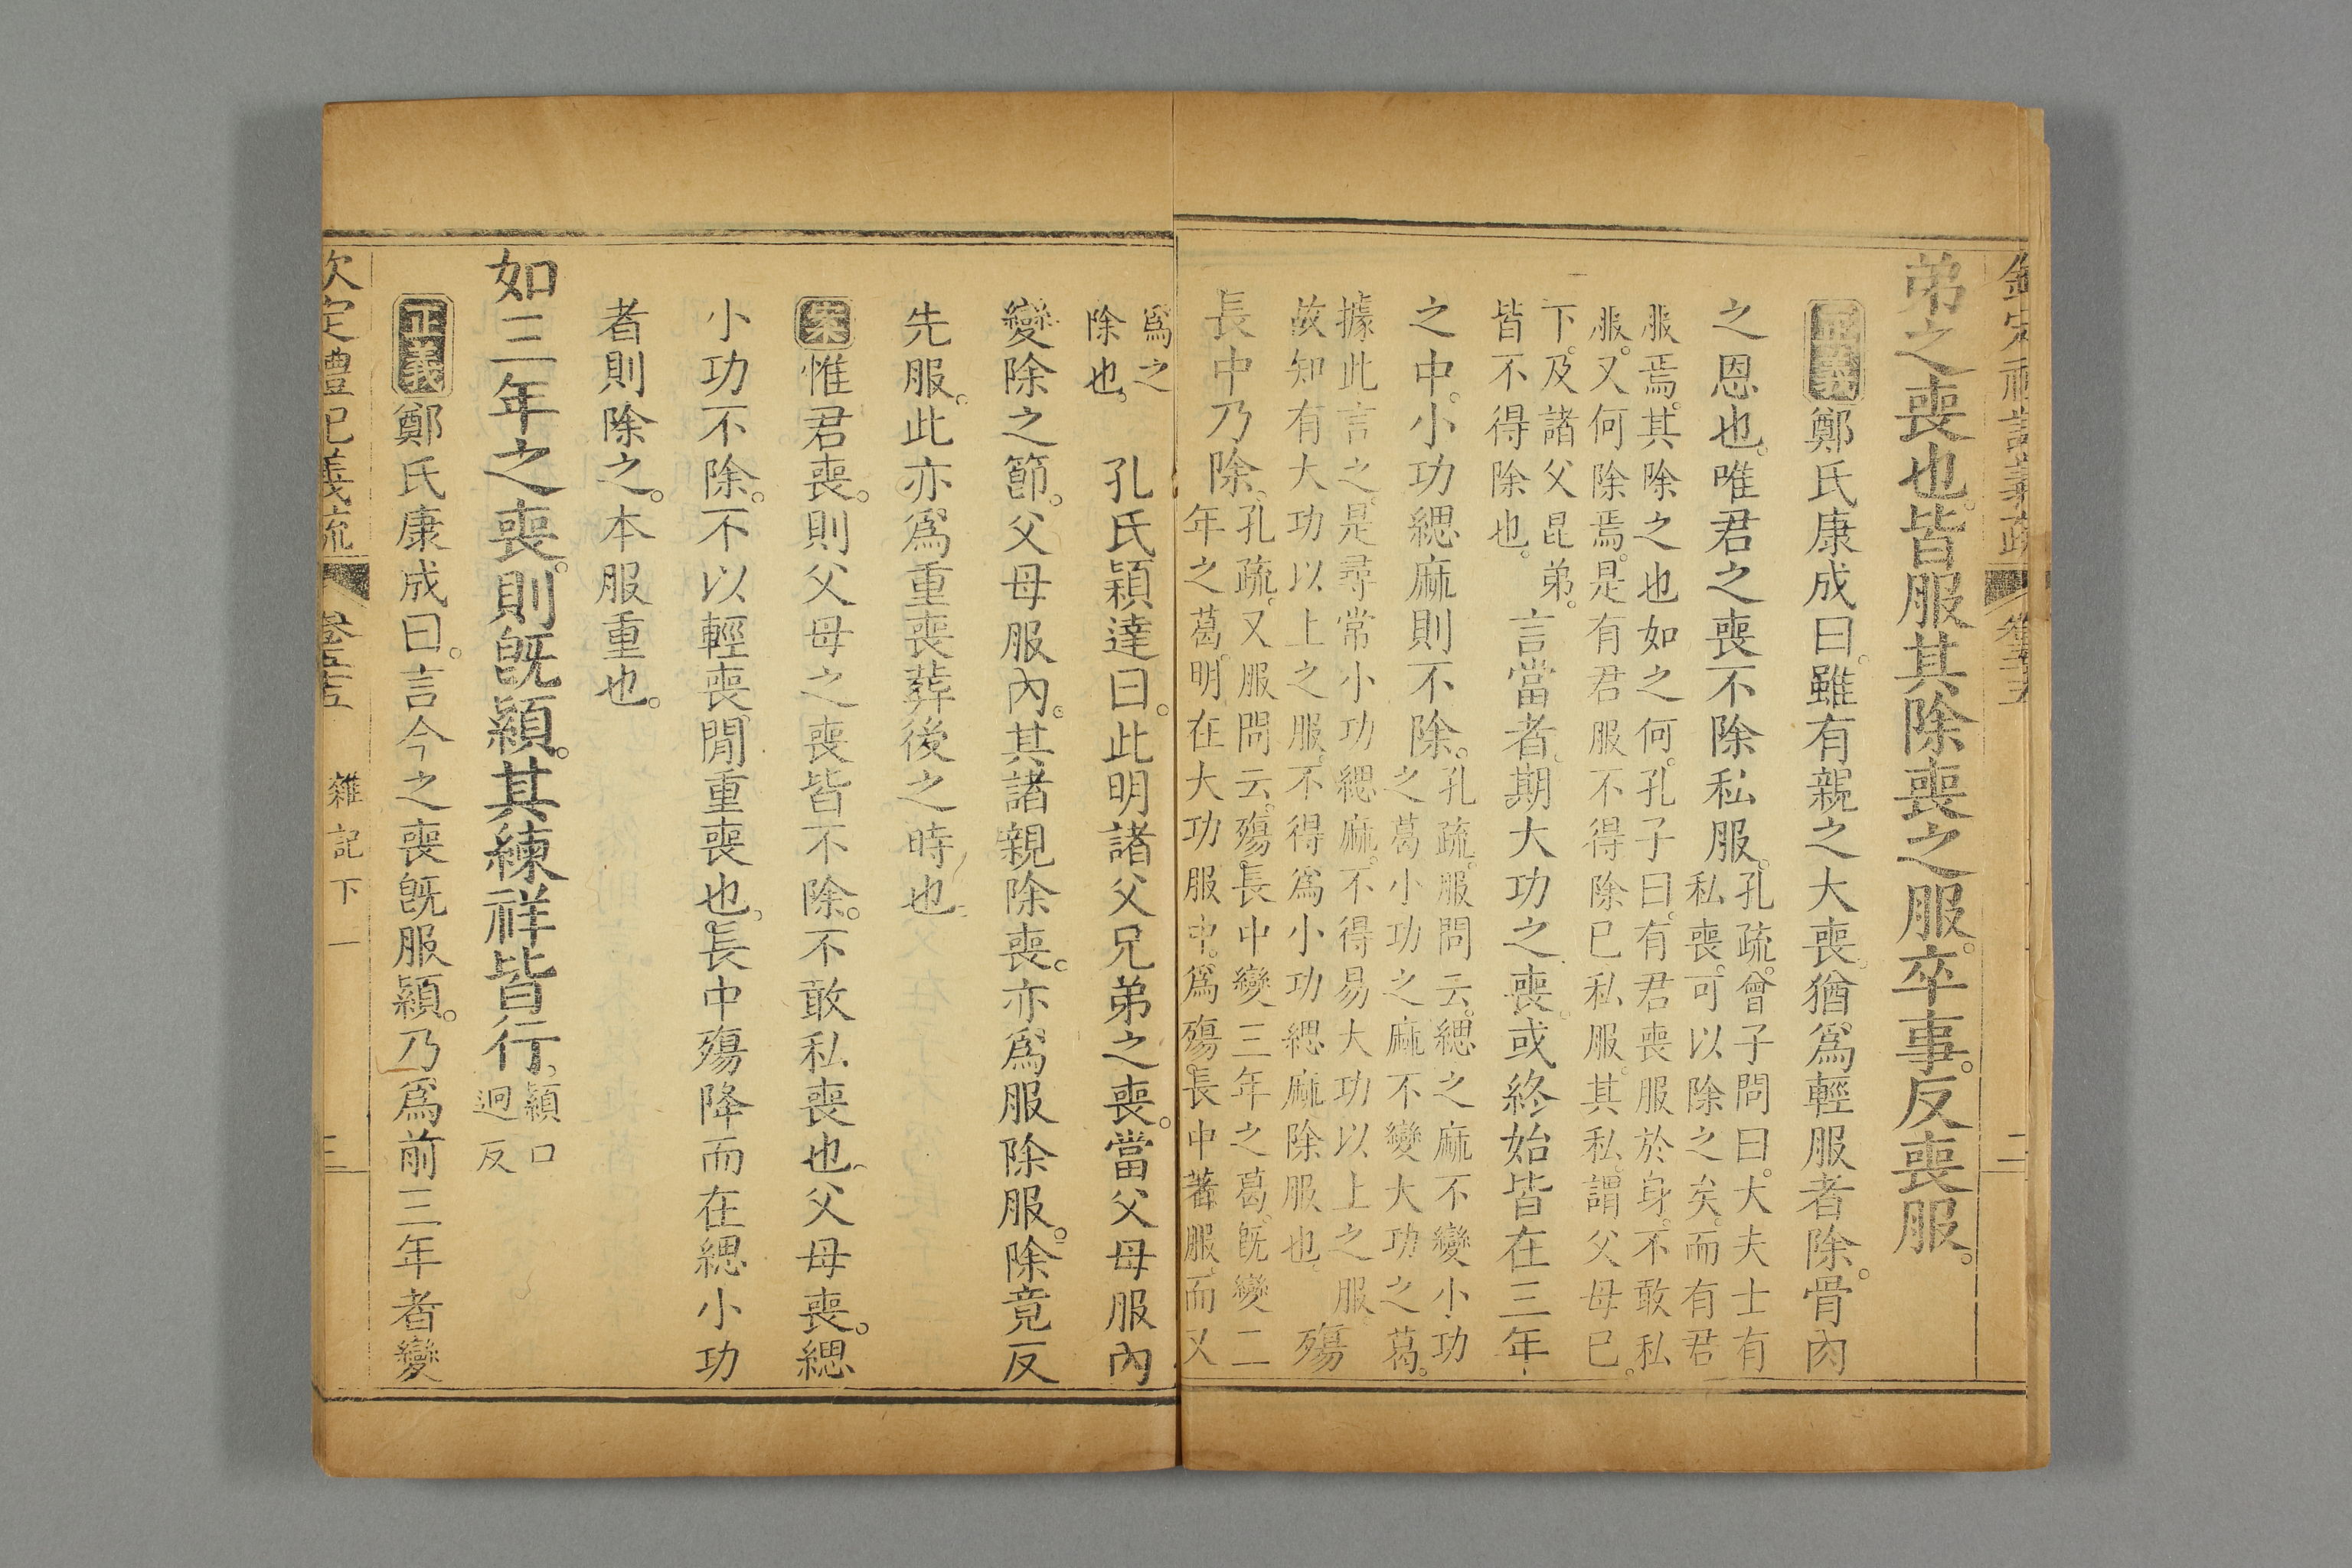 欽定禮記義疏 卷五十五 二
弟之喪也皆服其除喪之服卒事反喪服。
正義鄭氏康成曰。雖有親之大喪。猶為輕服者除。骨肉
之恩也。唯君之喪不除私服。
孔疏。曾子問曰。大夫士有
私喪。可以除之矣。而有君
服焉。其除之也如之何。孔子曰。有君喪服於身。不敢私
服。又何除焉。是有君服不得除已私服。其私。謂父母已
下。及諸父昆弟。
皆不得除也。
言當者。期大功之喪。或終始皆在三年
之中。小功緦麻則不除。
孔疏。服問云。緦之麻不變小功
之葛。小功之麻不變大功之葛。
據此言之。是尋常小功緦麻。不得易大功以上之服。
故知有大功以上之服。不得為小功緦麻除服也。
殤
長中乃除。
孔疏。又服問云。殤。長中變三年之葛。旣變二
年之葛。明在大功服中。為殤長中著服。而又
為之
除也。
孔氏穎達曰。此明諸父兄弟之喪。當父母服內
變除之節。父母服內。其諸親除喪。亦為服除服。除竟反
先服。此亦為重喪葬後之時也。
案惟君喪。則父母之喪皆不除。不敢私喪也。父母喪。緦
小功不除。不以輕喪閒重喪也。長中殤降而在緦小功
者則除之。本服重也。
如三年之喪。則旣顈。其練祥皆行。
顈口
迥反
正義鄭氏康成曰。言今之喪旣服顈。乃為前三年者變
欽定禮記義疏 卷五十五 雜記下一 三